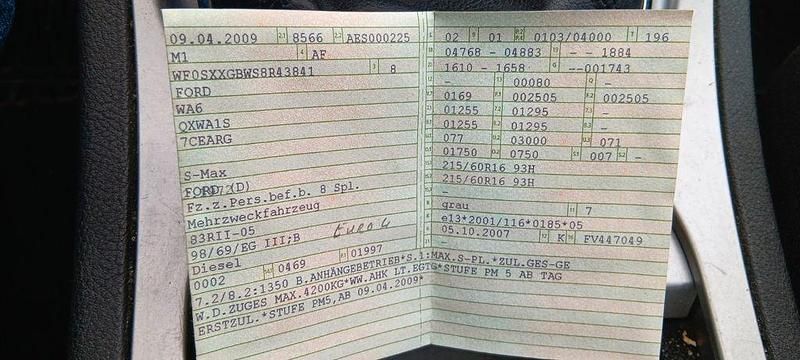 09.04.2009 2.1 8566 2.2 AES000225
M1 4 AF
WF0SXXGBWS8R43841 3 8
FORD
WA6
QXWA1S
7CEARG
S-Max
FORD (D)
Fz.z.Pers.bef.b. 8 Spl.
Mehrzweckfahrzeug
83RII-05
98/69/EG III;B Euro 4
Diesel
0002 0469 01997
7.2/8.2:1350 B.ANHÄNGEBETRIEB*S.1:MAX.S-PL.*ZUL.GES-GE
W.D.ZUGES MAX.4200KG*WW.AHK LT.EGTG*STUFE PM 5 AB TAG
ERSTZUL.*STUFE PM5,AB 09.04.2009*
L 02 9 01 P.2 P.4 0103/04000 T 196
18 04768 - 04883 19 - - 1884
20 1610 - 1658 G --001743
12 - 13 00080 Q -
V.7 0169 F.1 002505 F.2 002505
7.1 01255 7.2 01295 7.3 -
8.1 01255 8.2 01295 8.3 -
U.1 077 U.2 03000 U.3 071
O.1 01750 O.2 0750 S.1 007 S.2 -
215/60R16 93H
215/60R16 93H
-
R grau 11 7
K e13*2001/116*0185*05
6 05.10.2007 17 K 16 FV447049
21 -